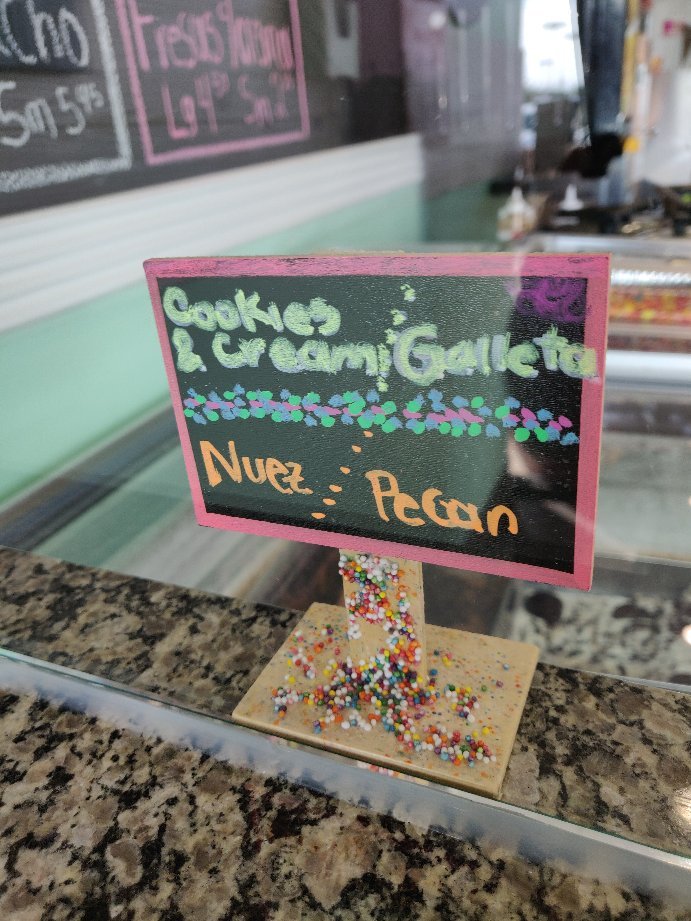 Sm 5.95
Fresas
Lg 4 Sm 2
Cookies
& Cream Galleta
Nuez Pecan